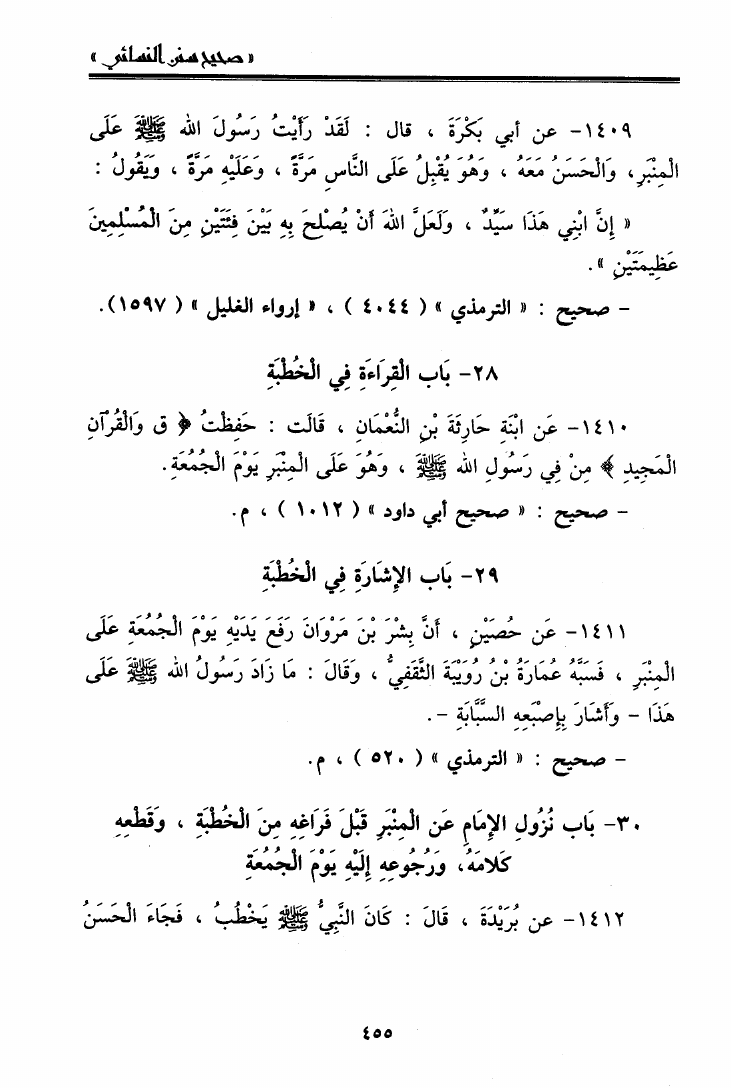 « صحيح سنن النسائي »
١٤٠٩- عن أبي بَكْرَةَ ، قال : لَقَدْ رَأَيْتُ رَسُولَ الله ﷺ عَلَى
المِنْبَرِ، وَالْحَسَنُ مَعَهُ ، وَهُوَ يُقْبِلُ عَلَى النَّاسِ مَرَّةً ، وَعَلَيْهِ مَرَّةً ، وَيَقُولُ :
« إِنَّ ابْنِي هَذَا سَيِّدٌ ، وَلَعَلَّ اللهَ أَنْ يُصْلِحَ بِهِ بَيْنَ فِئَتَيْنِ مِنَ الْمُسْلِمِينَ
عَظِيمَتَيْنِ ».
– صحيح : « الترمذي » ( ٤٠٤٤ ) ، « إرواء الغليل » ( ١٥٩٧).
٢٨- بَاب الْقِرَاءَةِ فِي الْخُطْبَةِ
١٤١٠- عَن ابْنَةِ حَارِثَةَ بْنِ النُّعْمَانِ ، قَالَت : حَفِظْتُ ﴿ ق وَالْقُرْآنِ
المَجِيدِ ﴾ مِنْ فِي رَسُولِ الله ﷺ ، وَهُوَ عَلَى الْمِنْبَرِ يَوْمَ الْجُمُعَةِ.
– صحيح : « صحيح أبي داود » ( ١٠١٢ ) ، م.
٢٩- بَاب الإِشَارَةِ فِي الْخُطْبَةِ
١٤١١- عَن حُصَيْنٍ ، أَنَّ بِشْرَ بْنَ مَرْوَانَ رَفَعَ يَدَيْهِ يَوْمَ الْجُمُعَةِ عَلَى
الْمِنْبَرِ ، فَسَبَّهُ عُمَارَةُ بْنُ رُوَيْبَةَ الثَّقَفِيُّ ، وَقَالَ : مَا زَادَ رَسُولُ الله ﷺ عَلَى
هَذَا – وَأَشَارَ بِإِصْبَعِهِ السَّبَّابَةِ –.
– صحيح : « الترمذي » ( ٥٢٠ ) ، م.
٣٠- بَاب نُزُولِ الإِمَامِ عَن الْمِنْبَرِ قَبْلَ فَرَاغِهِ مِنَ الْخُطْبَةِ ، وَقَطْعِهِ
كَلامَهُ، وَرُجُوعِهِ إِلَيْهِ يَوْمَ الْجُمُعَةِ
١٤١٢- عن بُرَيْدَةَ ، قَالَ : كَانَ النَّبِيُّ ﷺ يَخْطُبُ ، فَجَاءَ الْحَسَنُ
٤٥٥